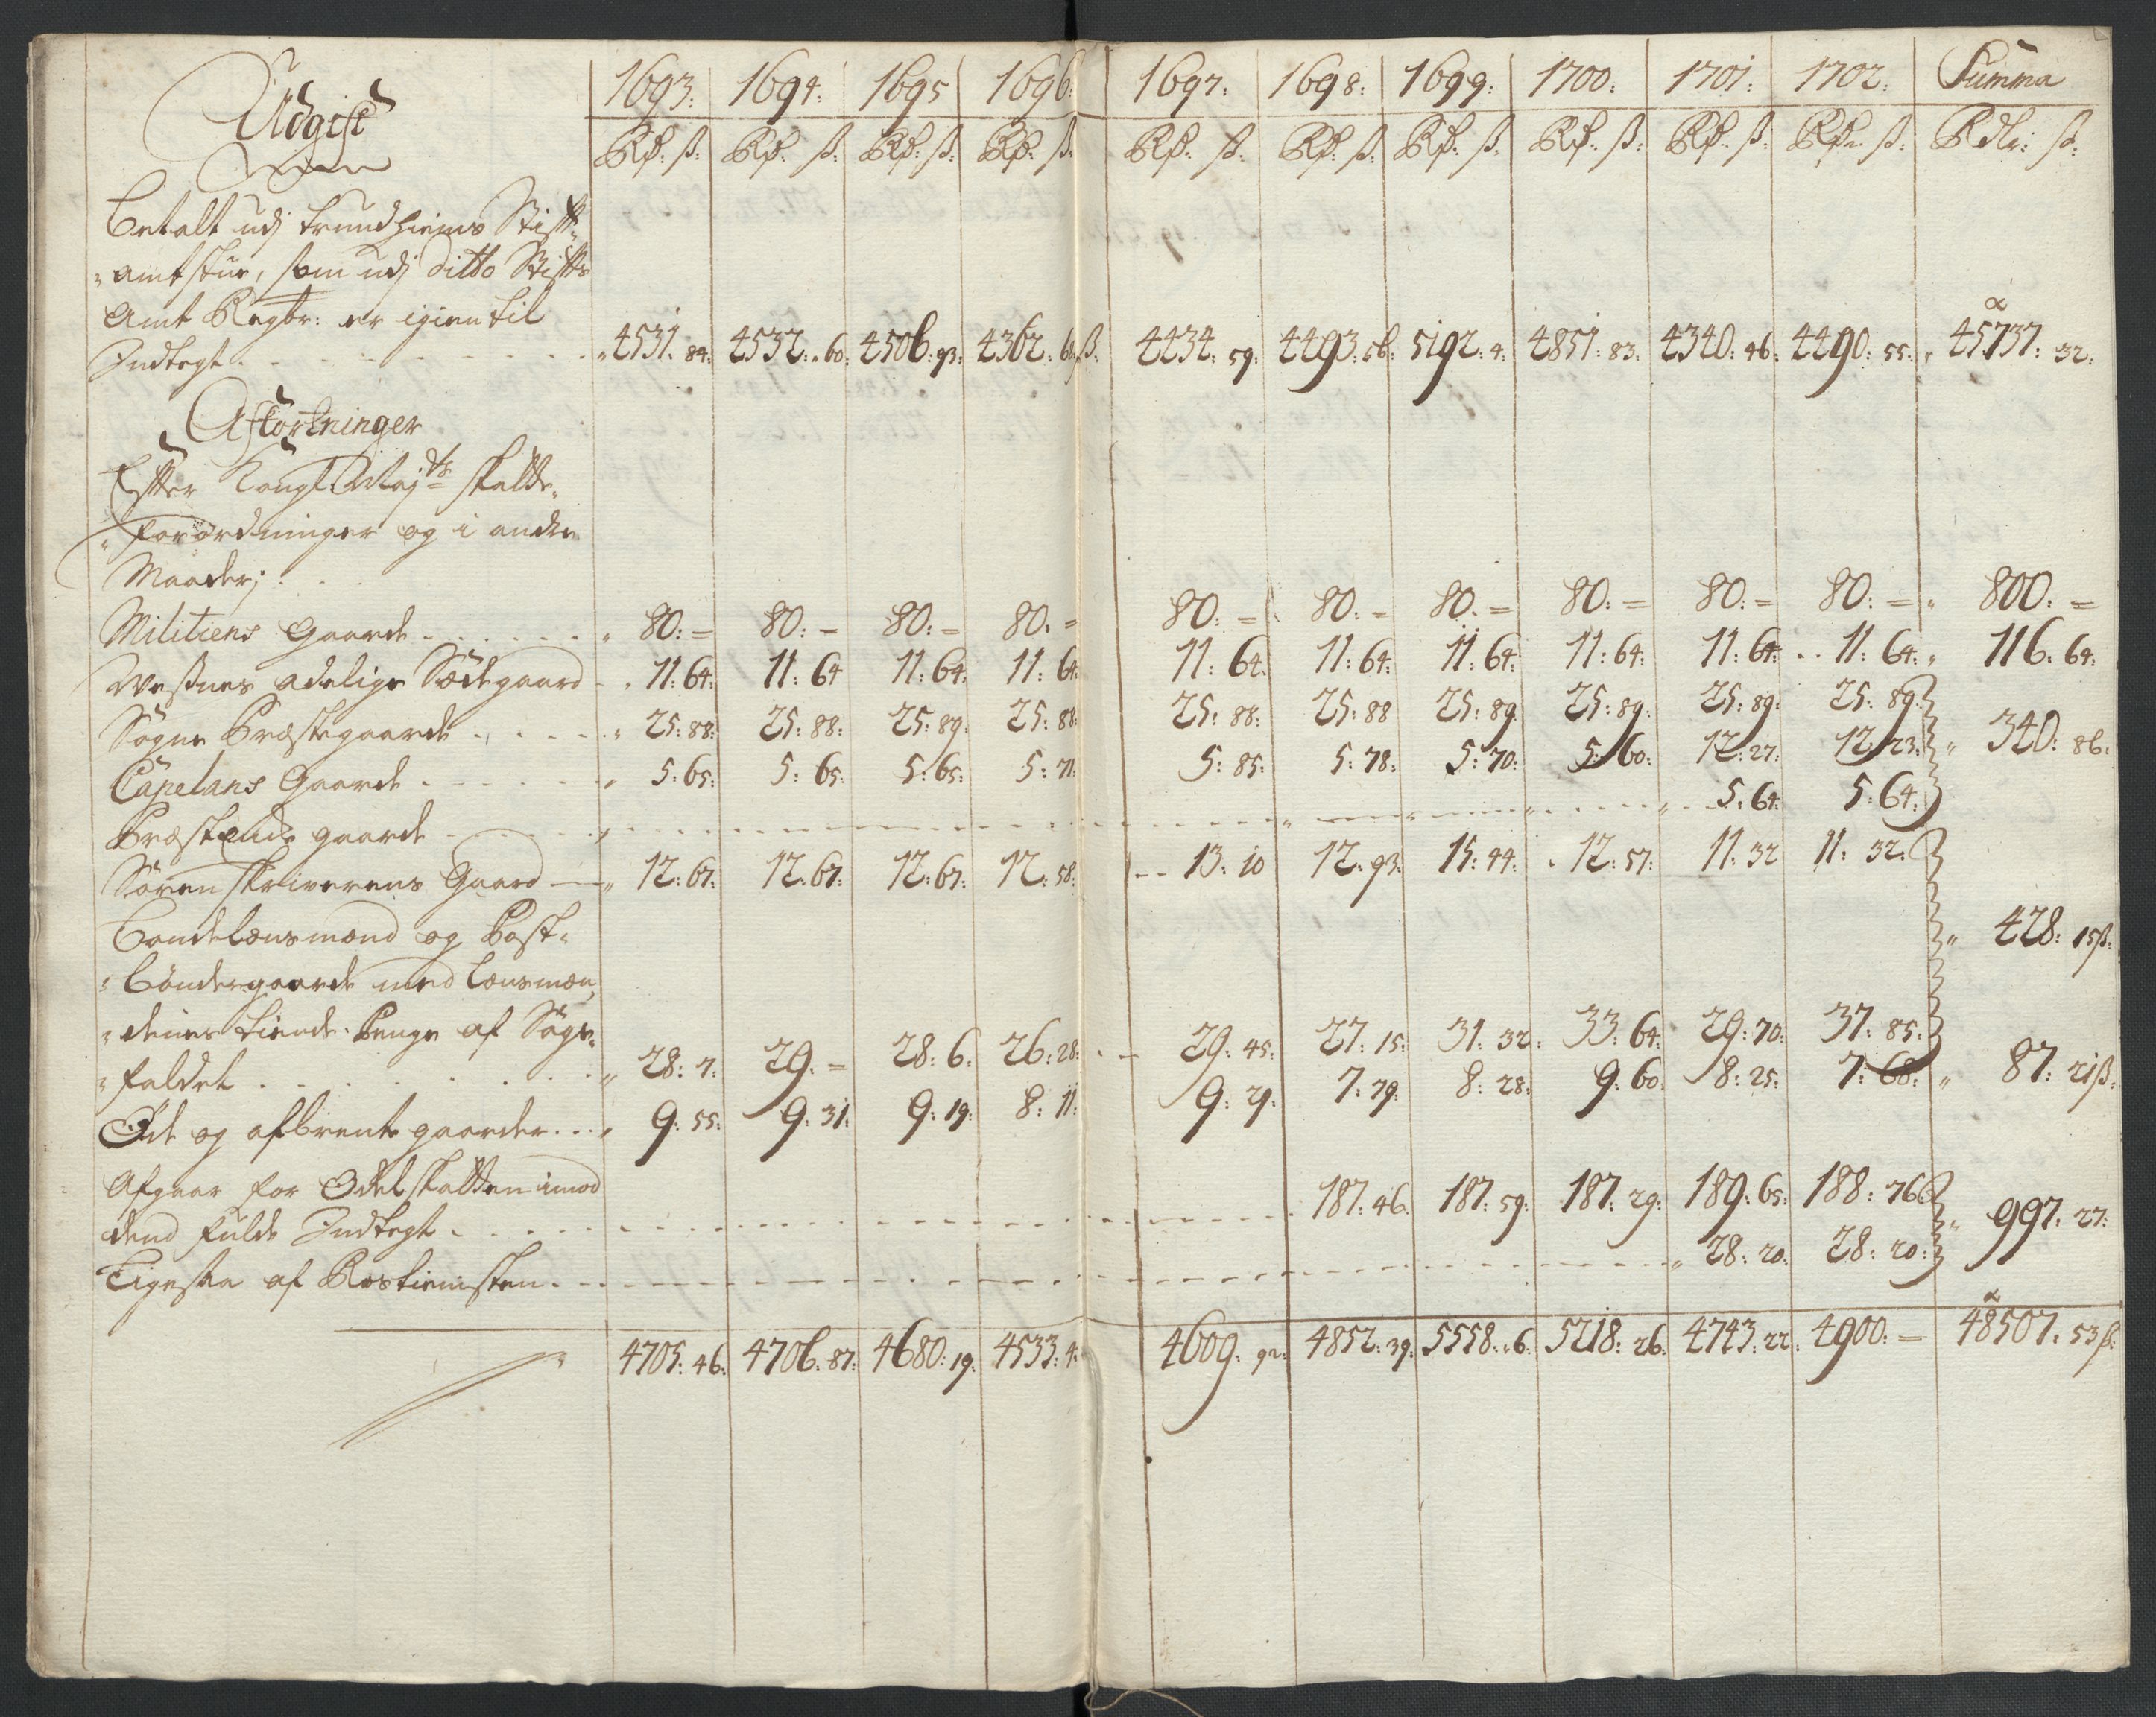 Udgift 1693: 1694: 1695 1696: 1697: 1698: 1699: 1700: 1701: 1702: Summa
Rd: ß: Rd: ß: Rd: ß: Rd: ß: Rd: ß: Rd: ß: Rd: ß: Rd: ß: Rd: ß: Rd: ß: Rdlr: ß:
Betalt udj trundhiems Stift-
amtstue, som udj ditto Stifts
Amt Regbr: er igien til
Indtegt 4531. 84: 4532. 60: 4506: 93: 4362: 68 ß: 4434: 59: 4493: 56: 5192: 4: 4851: 83: 4340: 46: 4490: 55: 45737: 32:
Afkortninger
Efter Kongl: Majts skatte-
forordninger og i andre
Maader;
Militiens Gaarde 80: = 80: = 80: = 80: = 80: = 80: = 80: = 80: = 80: = 80: = 800: =
Weßnes adelige Sædegaard 11: 64: 11: 64 11: 64: 11: 64 11: 64: 11: 64: 11: 64: 11: 64: 11: 64: 11: 64: 116: 64:
Sogne Præstegaarde 25: 88: 25: 88: 25: 89: 25: 88: 25: 88: 25: 88 25: 89 25: 89: 25: 89: 25: 89: 340: 86:
Capelans Gaarde 5: 65: 5: 65: 5: 65: 5: 71: 5: 85: 5: 78: 5: 70: 5: 60: 12: 27: 12: 23:
Præstende gaarde 5: 64: 5: 64:
Sorenskriverens Gaard 12: 67: 12: 67: 12: 67: 12: 58: 13: 10 12: 93: 15: 44: 12: 57: 11: 32 11: 32:
Bondelænsmænd og Post-
bøndergaarde med Lænsmæn-
denes tiende Penge af Sage-
faldet 28: 7: 29: = 28: 6: 26: 28: 29: 45: 27: 15: 31: 32: 33: 64: 29: 70: 37: 85: 428: 15ß:
Øde og afbrente gaarder 9: 55: 9: 31: 9: 19: 8: 11: 9: 29: 7: 79: 8: 28: 9: 60: 8: 25: 7: 68: 87: 21ß:
Afgaar for Odelskatten imod
dend fulde Indtegt 187: 46: 187: 59: 187: 29: 189: 65: 188: 76: 997: 27:
Ligesaa af Rostienisten 28: 20: 28: 20:
4705: 46: 4706: 87: 4680: 19: 4533: 4: 4609: 92: 4852: 39: 5558: 6: 5218: 26: 4743: 22: 4900: = 48507: 53ß: